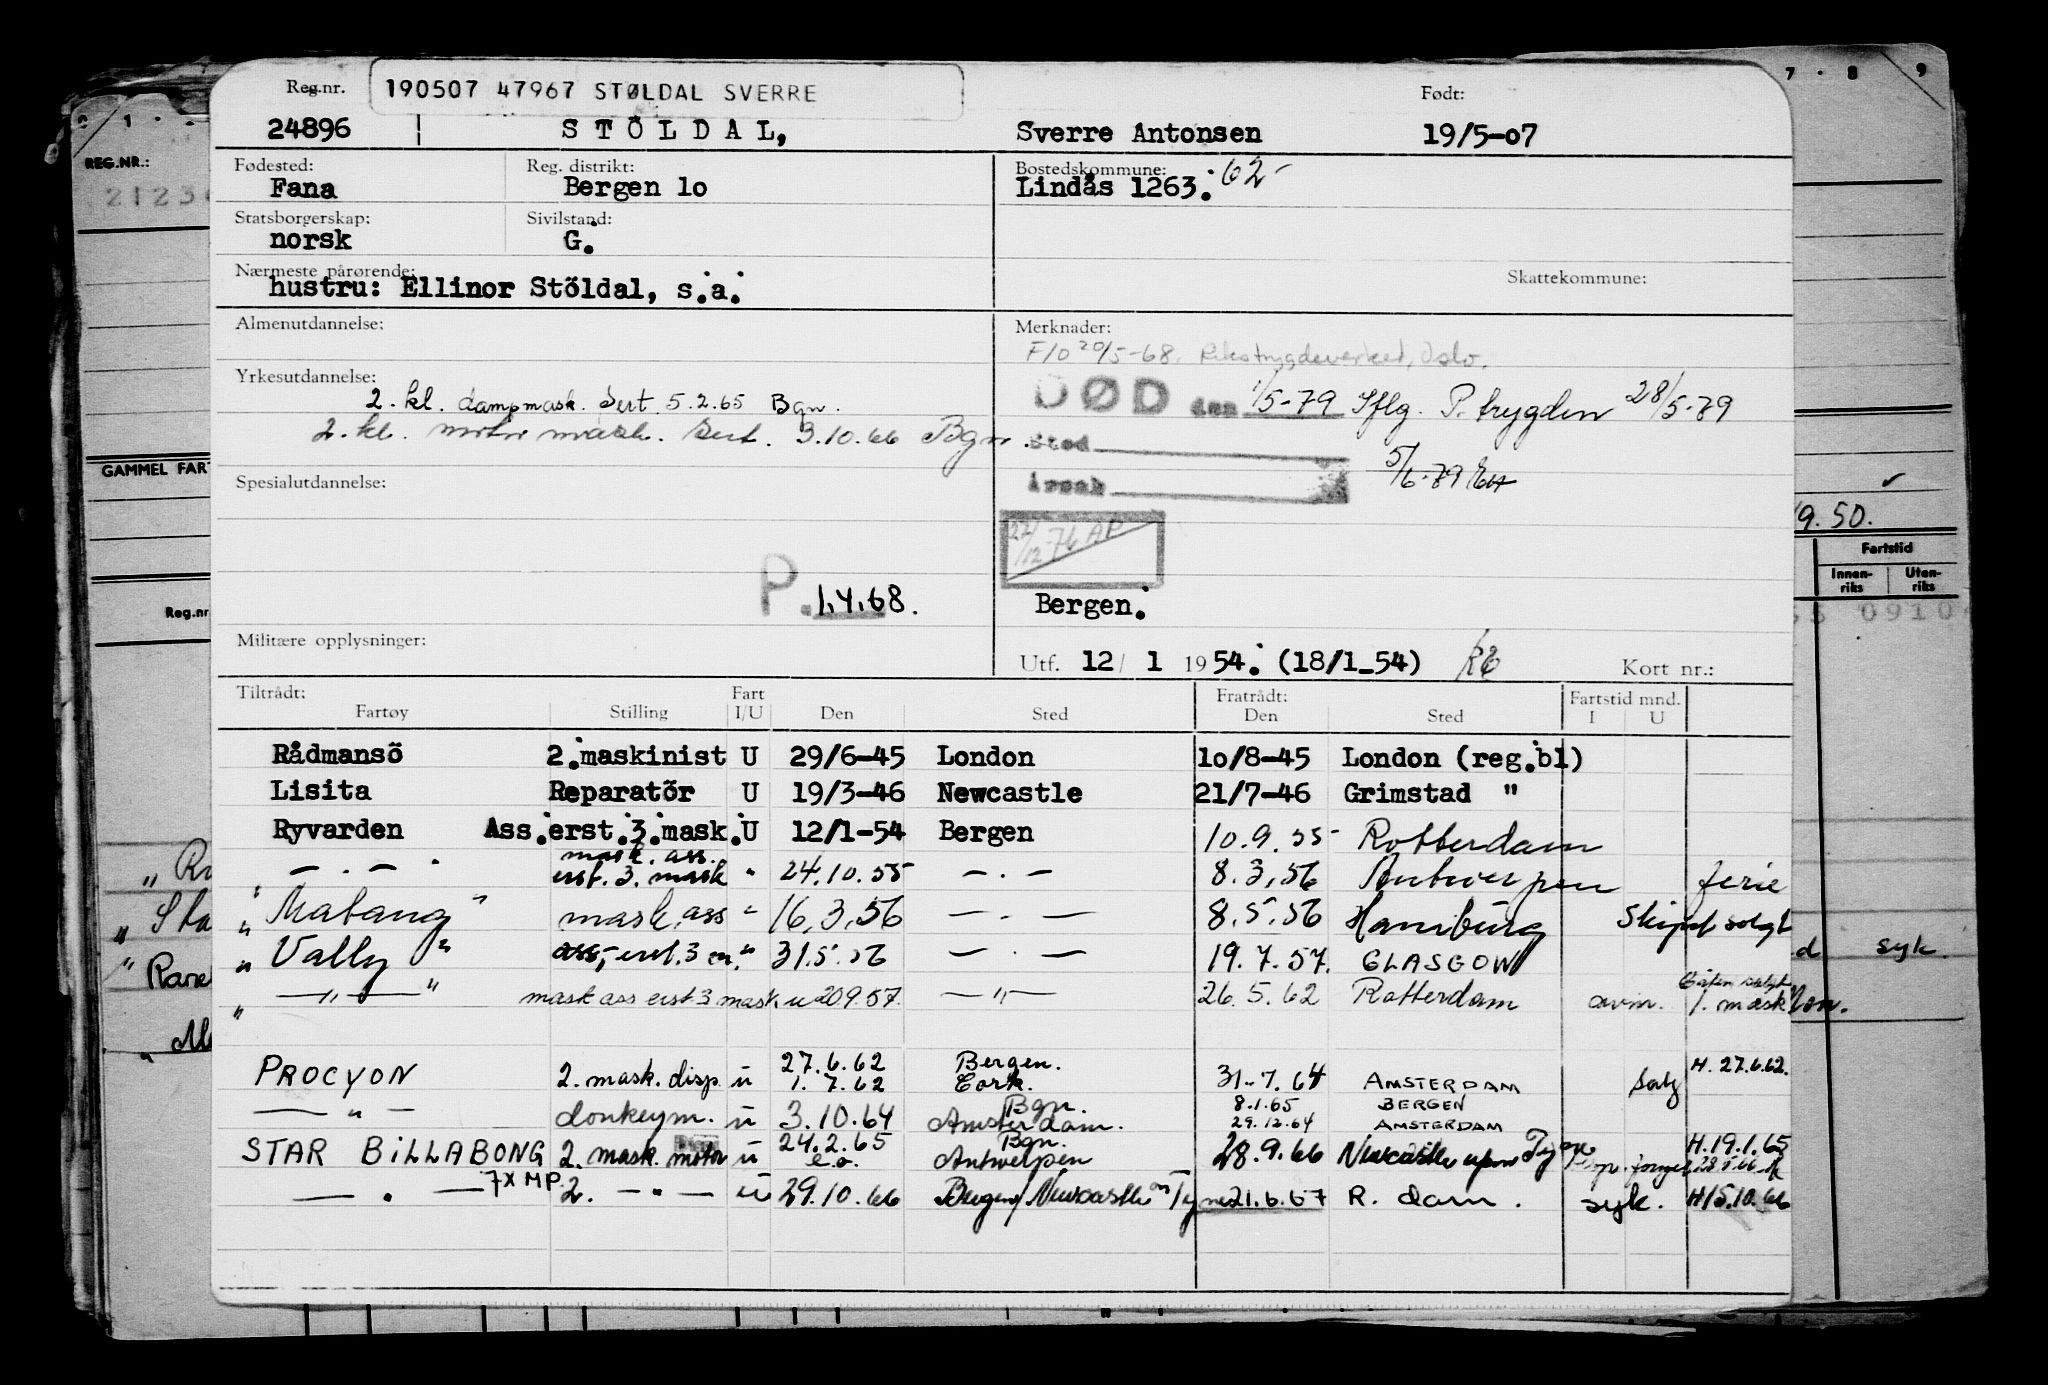 Reg.nr. 190507 47967 STØLDAL SVERRE Født:
24896 STÖLDAL, Sverre Antonsen 19/5-07
Fødested: Reg. distrikt: Bostedskommune: 62
Fana Bergen 1o Lindås 1263.
Statsborgerskap: Sivilstand:
norsk G.
Nærmeste pårørende: Skattekommune:
hustru: Ellinor Stöldal, s.a.
Almenutdannelse: Merknader:
F/O 20/5-68. Rikstrygdeverket, Oslo.
Yrkesutdannelse:
DØD den 1/5-79 Iflg. P. trygden 28/5-79
2. kl. dampmask. Sert 5.2.65 Bgn.
2. kl. motor mask. sert. 3.10.66 Bgn.
Sted
5/6-79
Årsak
Spesialutdannelse:
22/12-76 AP
P. 1.4.68.
Bergen.
Militære opplysninger:
Utf. 12/ 1 1954. (18/1-54) Kort nr.:
Tiltrådt: Fart Fratrådt: Fartstid mnd.
Fartøy Stilling I/U Den Sted Den Sted I U
Rådmansö 2.maskinist U 29/6-45 London 1o/8-45 London (reg.bl)
Lisita Reparatör U 19/3-46 Newcastle 21/7-46 Grimstad "
Ryvarden Ass.erst.3.mask.U 12/1-54 Bergen 10.9.55 Rotterdam
mask. ass.
— . — erst. 3. mask " 24.10.55 — . — 8.3.56 Antwerpen ferie
" Matang " mask. ass " 16.3.56 — . — 8.5.56 Hamburg Skipet solgt
" Vally " ass, erst. 3 m. " 31.5.56 — . — 19.7.57. GLASGOW
" — " — " mask ass erst 3 mask u 20.9.57. — " — 26.5.62 Rotterdam avm. 1. mask
27.6.62 Bergen. H. 27.6.62.
PROCYON 2. mask. disp. u 1.7.62 Cork. 31.7.64 AMSTERDAM Salg
Bgn. 8.1.65 BERGEN
— " — donkeym. u 3.10.64 Amsterdam. 29.12.64 AMSTERDAM
24.2.65 Bgn. H. 19.1.65
STAR BILLABONG 2. mask. motor u e.o. Antwerpen 28.9.66 Newcastle upon Tyne
— . — 7X MP. 2. — " — u 29.10.66 Bergen/Newcastle on Tyne 21.6.67 R. dam. syk. H15.10.66
7 . 8 9
REG.NR.:
GAMMEL FART
9.50.
Fartstid
Innenriks Utenriks
Reg.nr
0910
syk.